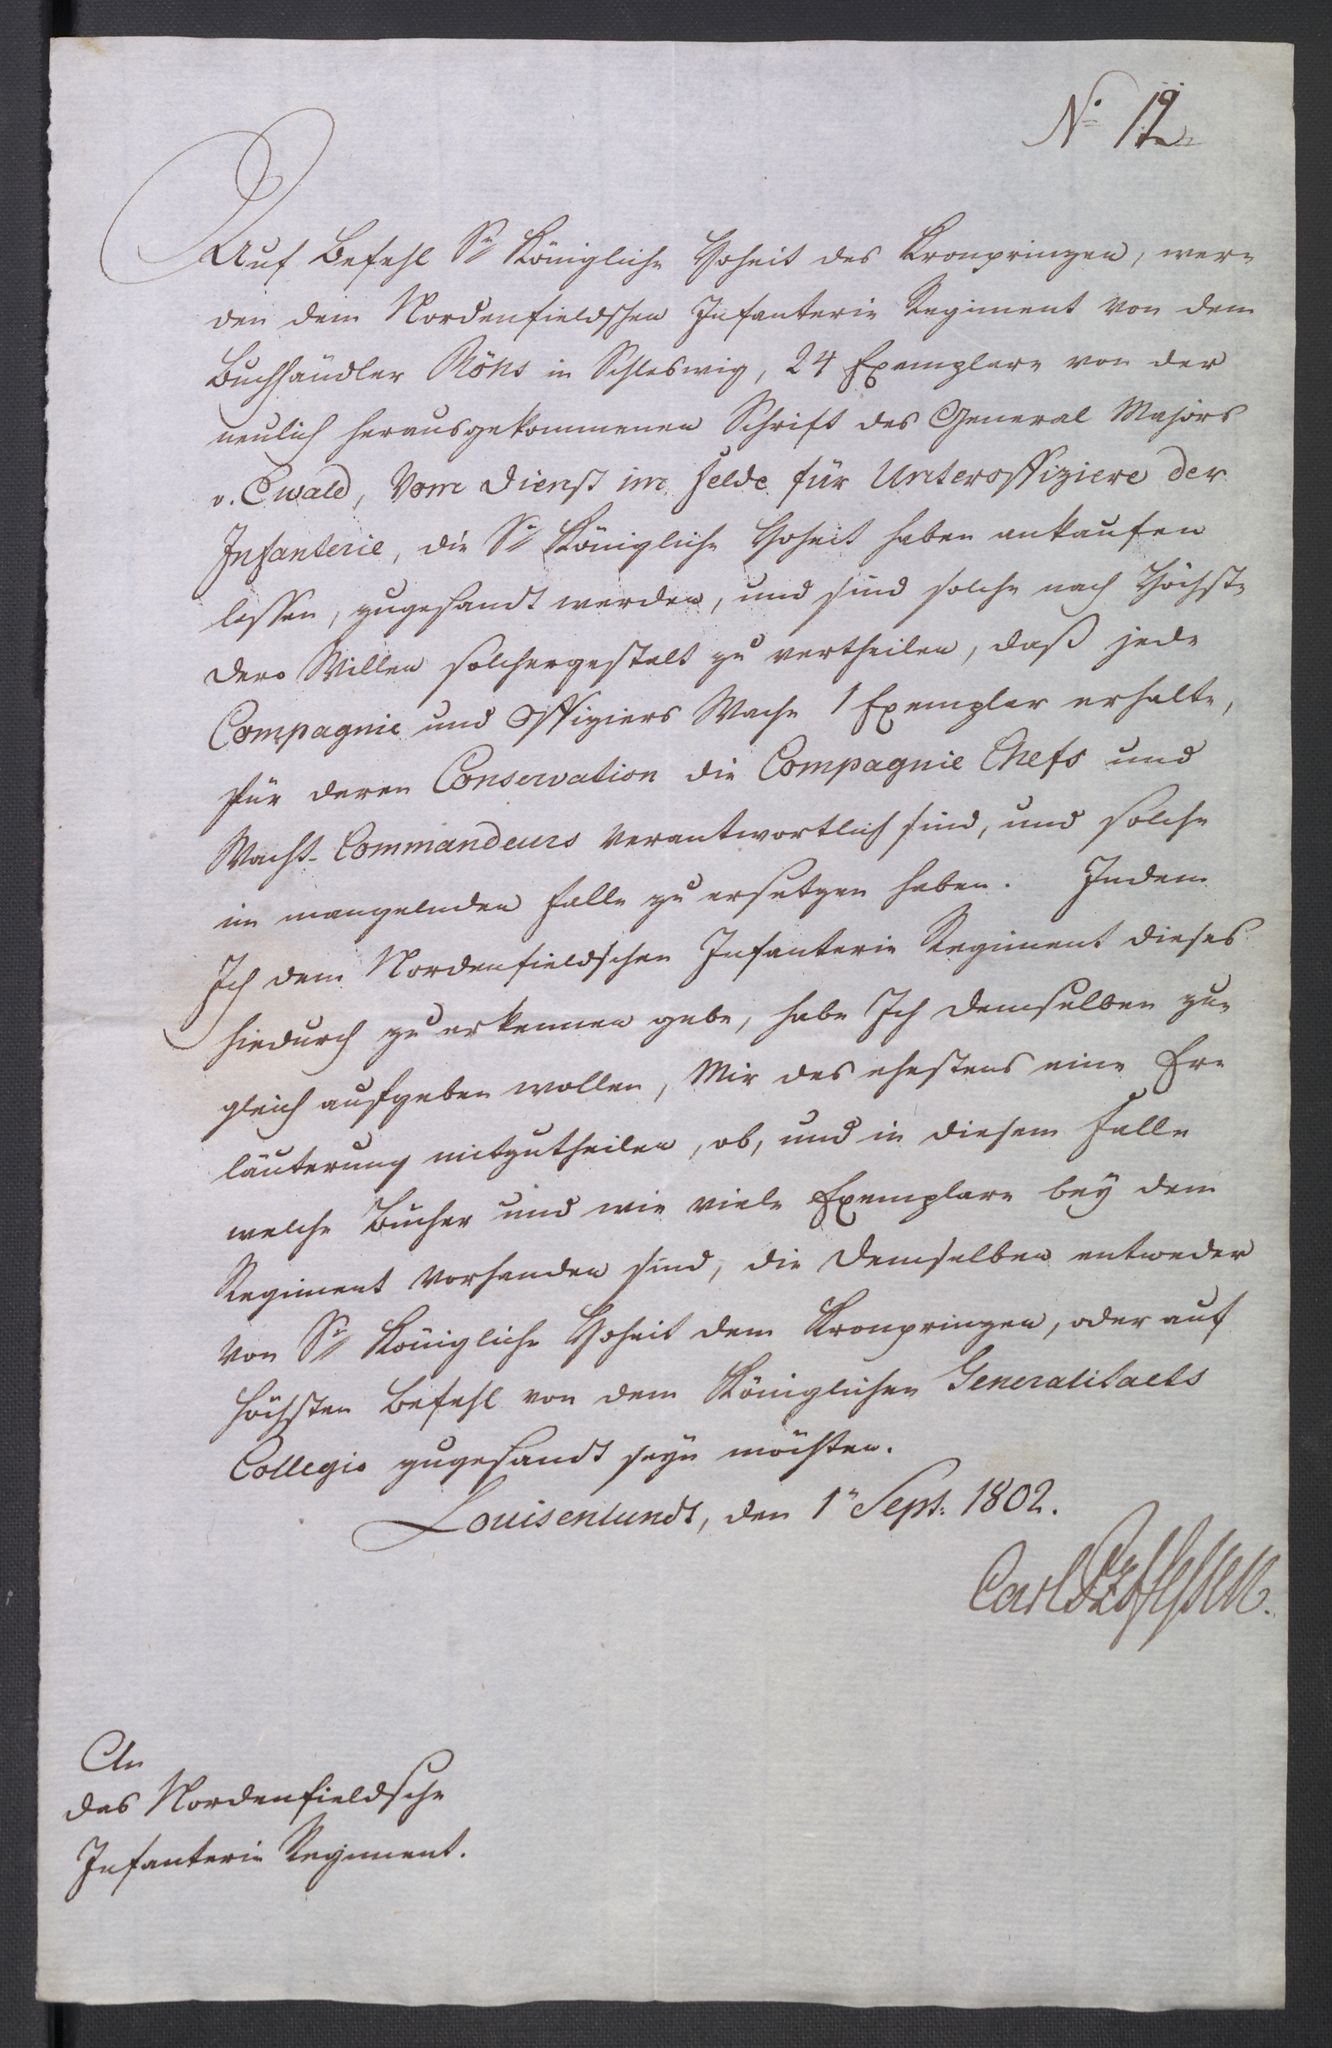 No 12
Auf Befehl Sr Königliche Hoheit des Kronprinzen, wer-
den dem Nordenfieldschen Infanterie Regiment von dem
Buchhändler Röhs in Schleswig, 24 Exemplare von der
neulich herausgekommenen Schrift des General Majors
v. Ewald, Vom Dienst im Felde für Unteroffiziere der
Infanterie, die Sr Königliche Hoheit haben ankaufen
lassen, zugesandt werden, und sind solche nach Höchst-
Dero Willen solchergestalt zu vertheilen, daß jede
Compagnie und Offiziers Wache 1 Exemplar erhalte,
für deren Conservation die Compagnie Chefs und
Wacht-Commandeurs verantwortlich sind, und solche
im mangelnden Falle zu ersetzen haben. Indem
Ich dem Nordenfieldschen Infanterie Regiment dieses
hiedurch zu erkennen gebe, habe Ich Demselben zu-
gleich aufgeben wollen, Mir des ehestens eine Er-
läuterung mitzutheilen, ob, und in diesem Falle
welche Bücher und wie viele Exemplare bey dem
Regiment vorhanden sind, die Demselben entweder
von Sr Königliche Hoheit dem Kronprinzen, oder auf
Höchsten Befehl von dem Königlichen Generalitaets
Collegio zugesandt seyn möchten.
Louisenlundt, den 1n Sept. 1802.
Carl PzHessen.
An
das Nordenfieldsche
Infanterie Regiment.